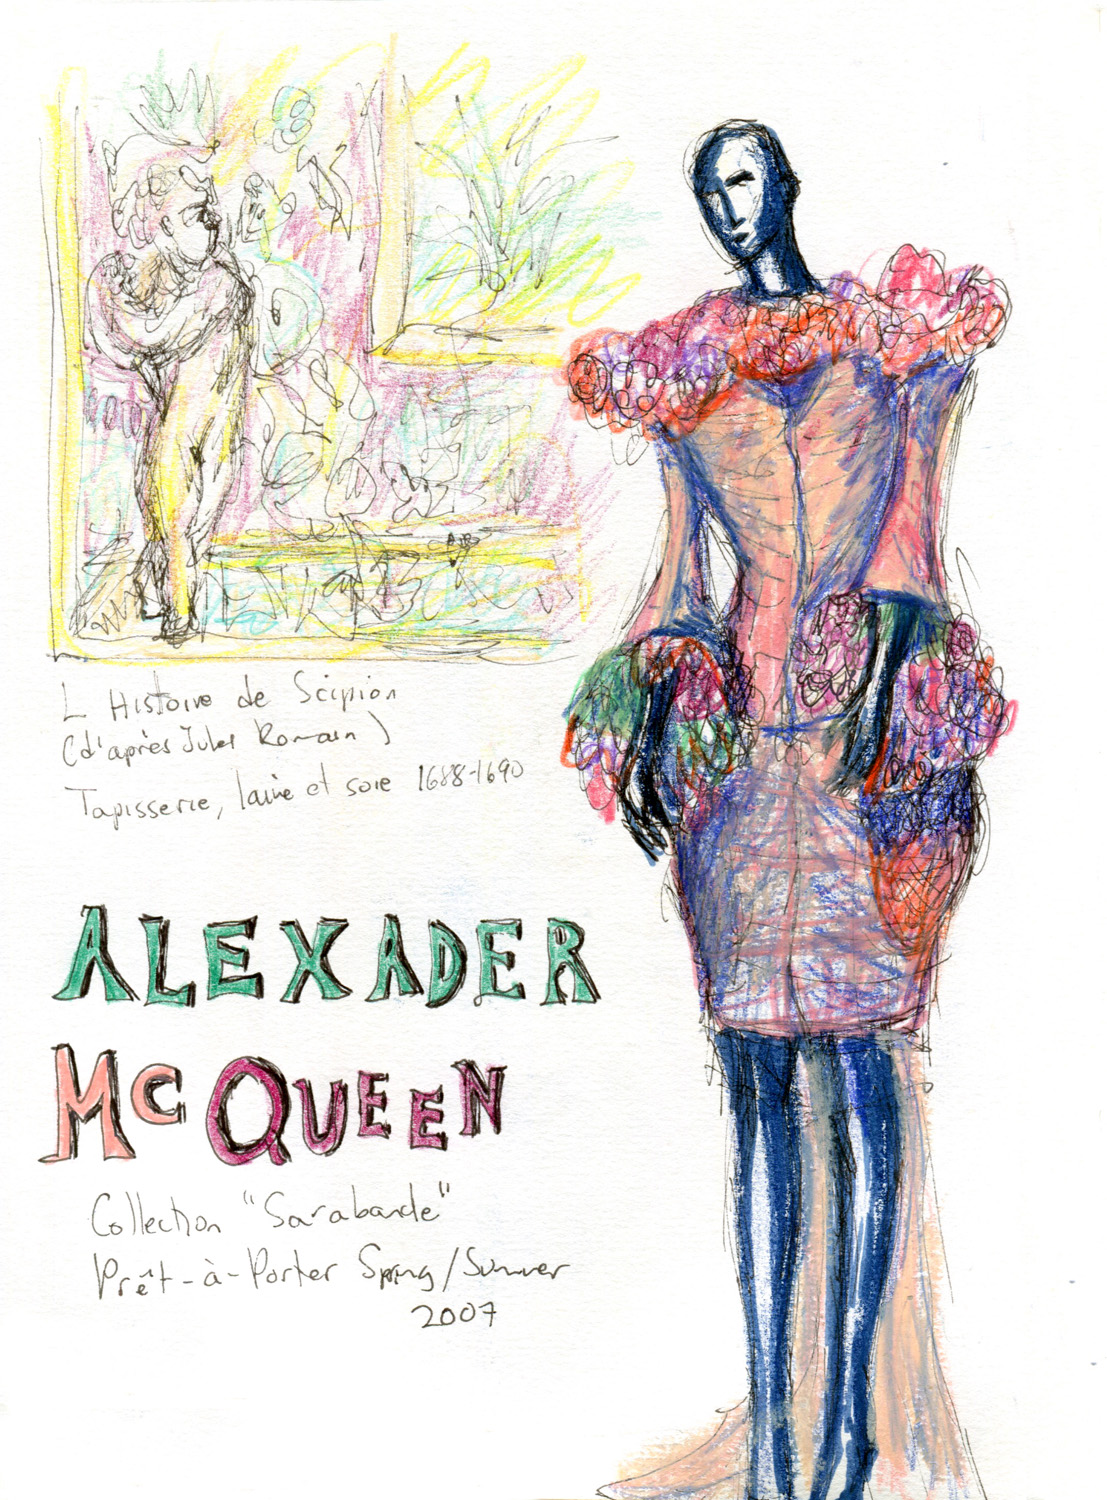 L Histoire de Scipion
(d'après Jules Romain)
Tapisserie, laine et soie 1688-1690
ALEXADER
McQUEEN
Collection "Sarabande"
Prêt-à-Porter Spring/Summer
2007